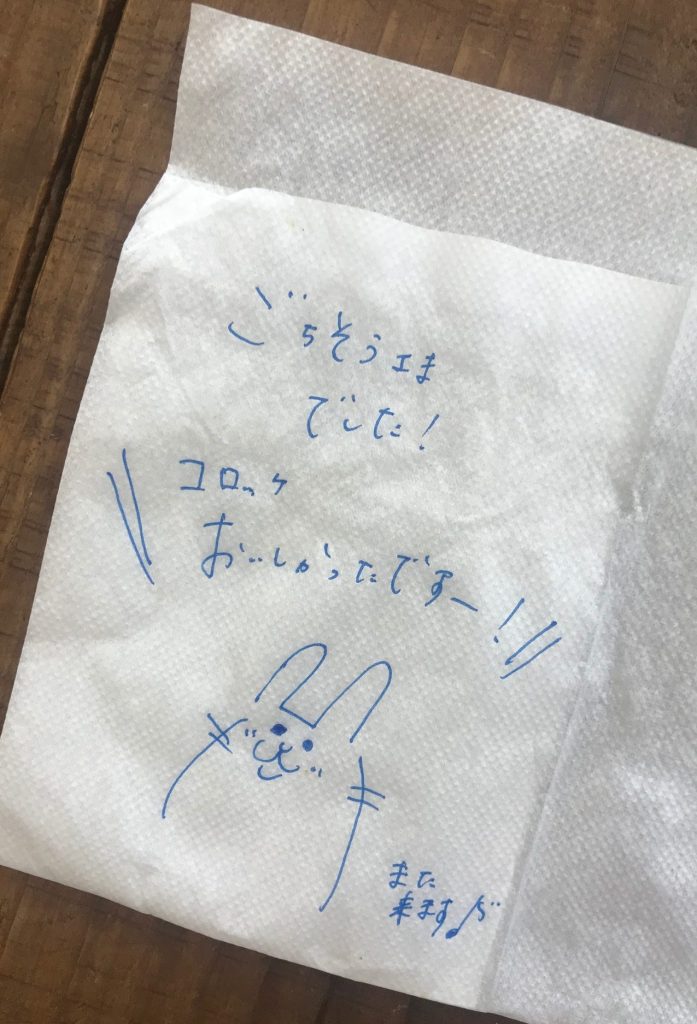 ごちそうさま
でした!
コロッケ
\\ おいしかったですー! //
また
来ます♪